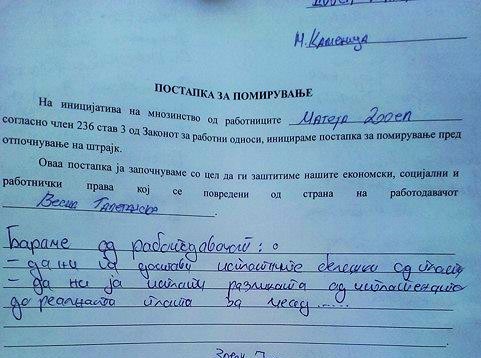 М. Каменица
ПОСТАПКА ЗА ПОМИРУВАЊЕ
На иницијатива на мнозинство од работниците Матеја 2 ооел
согласно член 236 став 3 од Законот за работни односи, инцираме постапка за помирување пред
отпочнување на штрајк.
Оваа постапка ја започнуваме со цел да ги заштитиме нашите економски, социјални и
работнички права кој се повредени од страна на работодавачот
Весна
Бараме од работодавачот :
- да ни ги достави исплатните белешки од плата
- да ни ја исплати разликата од исплатената
до реалната плата за месец .....